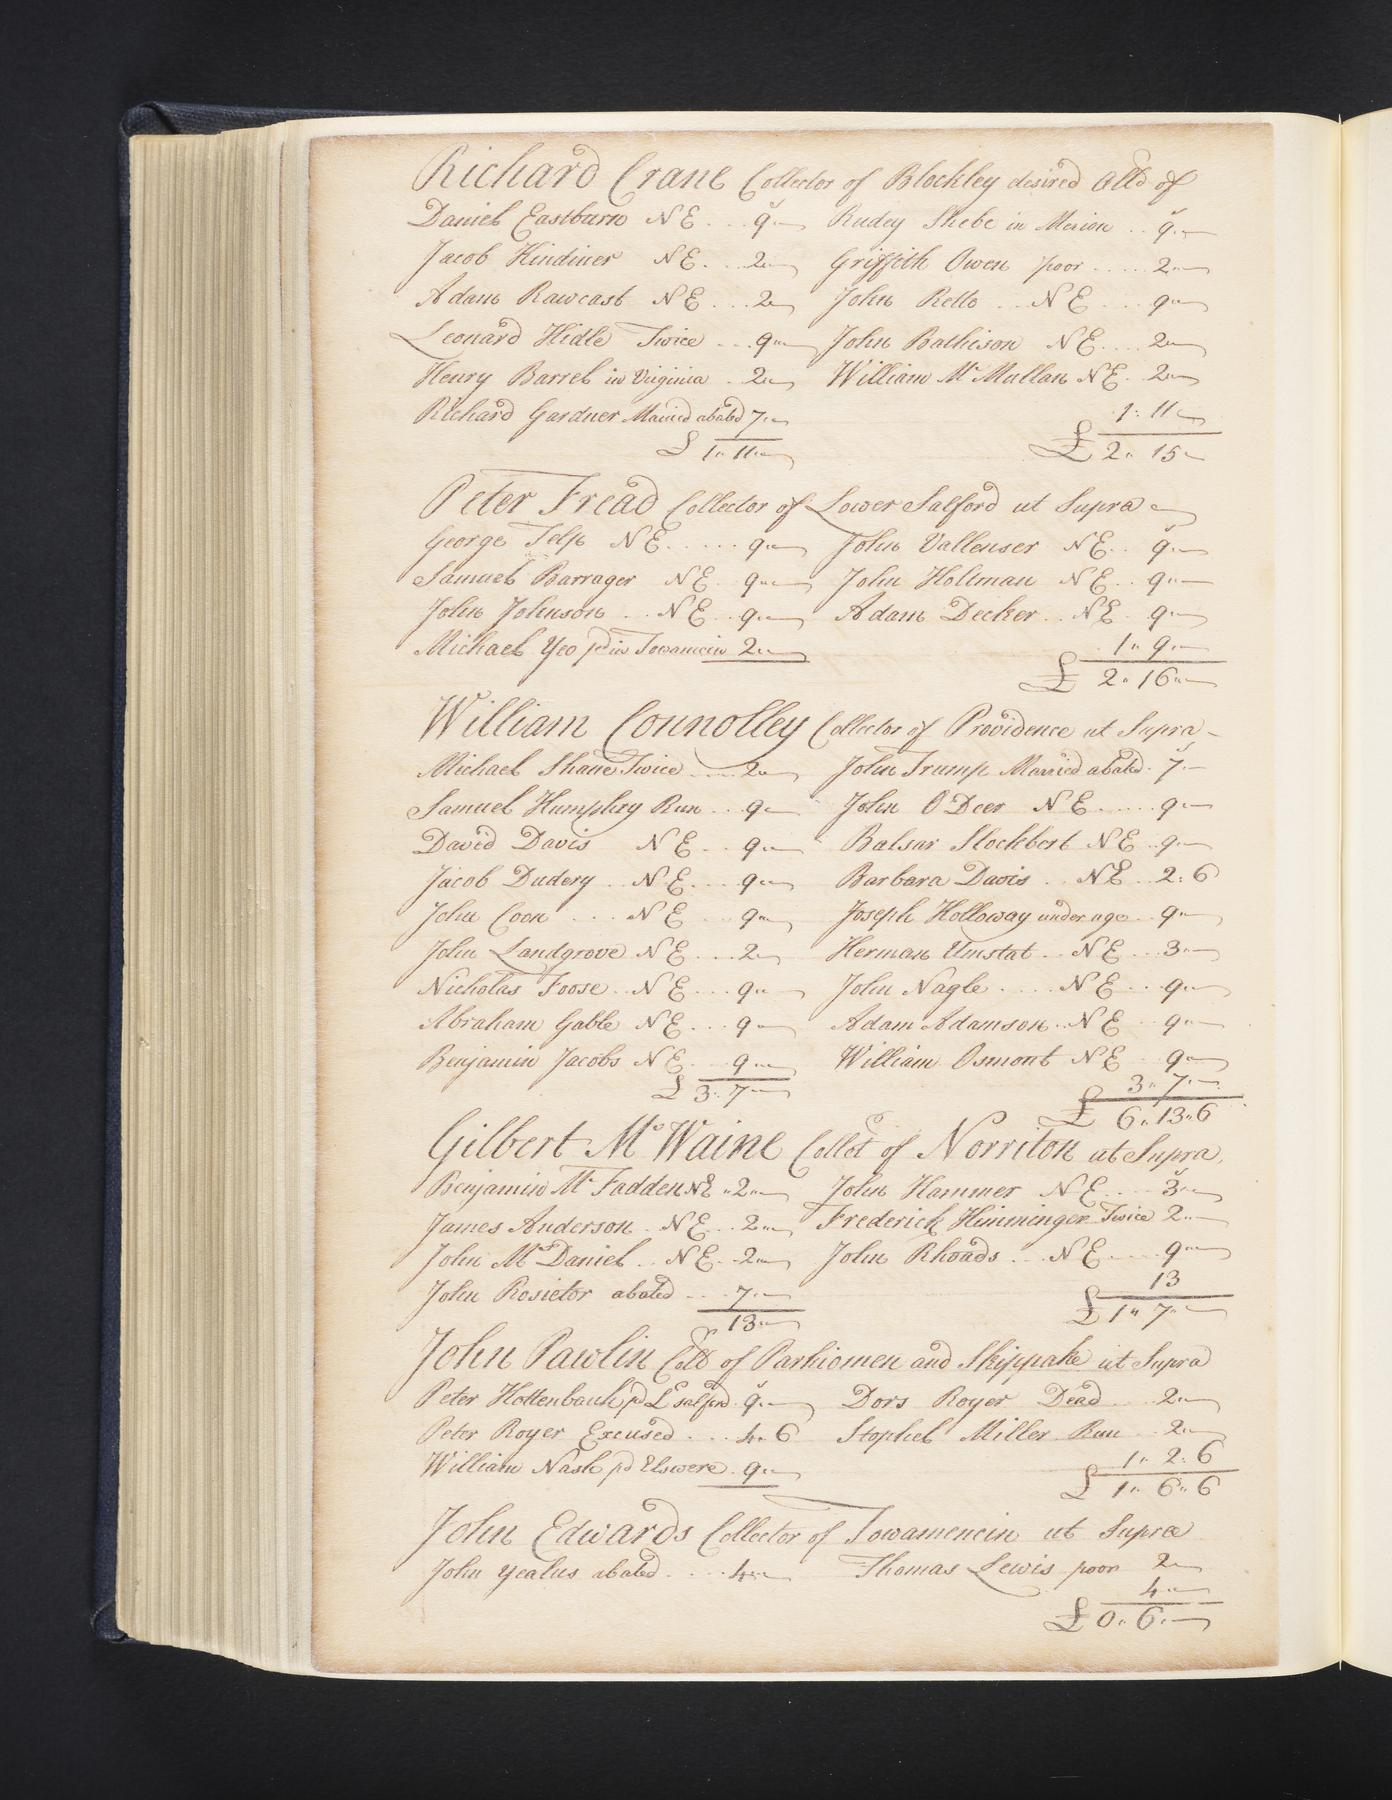 Richard Crane Collector of Blockley desired Alld of
Daniel Eastburn NE . . . 9 „ — Rudey Shebe in Merion . . 9 „ —
Jacob Hindiner NE . . . 2 „ — Griffith Owen poor . . . . . 2 „ —
Adam Rawcast NE . . . 2 „ — John Retto . . . NE . . . . 9 „ —
Leonard Hidle Twice . . . 9 „ — John Bathison NE . . . . 2 „ —
Henry Barrel in Virginia . . 2 „ — William Mc Mullan NE . 2 „ —
Richard Gardner Maried abated 7 „ — 1 : 11 „ —
£ 1 „ 11 „ — £ 2 „ 15 „ —
Peter Fread Collector of Lower Salford ut Supra
George Telp NE . . . . . 9 „ — John Vallenser NE . . 9 „ —
Samuel Barrager NE . 9 „ — John Holtman NE . . 9 „ —
John Johnson . . . NE . . 9 „ — Adam Decker . . NE . 9 „ —
Michael Yeo pd in Towamcin 2 „ — 1 „ 9 „ —
£ 2 „ 16 „ —
William Connolley Collector of Providence ut Supra
Michael Shane Twice . . . . 2 „ — John Trump Married abated . 7 „ —
Samuel Humphry Run . . . 9 „ — John O'Deer NE . . . . . 9 „ —
David Davis NE . . . 9 „ — Balsar Slockbert NE . . 9 „ —
Jacob Dudery . . NE . . . 9 „ — Barbara Davis . . NE . . 2 : 6
John Coon . . . . NE . . . 9 „ — Joseph Holloway under age . . 9 „ —
John Landgrove NE . . . 2 „ — Herman Umstat . . NE . . . 3 „ —
Nicholas Foose . . NE . . . 9 „ — John Nagle . . . . . NE . . . 9 „ —
Abraham Gable NE . . . 9 „ — Adam Adamson . . NE . . 9 „ —
Benjamin Jacobs NE . . . 9 „ — William Osmont NE . . 9 „ —
£ 3 „ 7 „ — 3 „ 7 „ —
£ 6 „ 13 „ 6
Gilbert Mc Waine Collet of Norriton ut Supra
Benjamin Mc Fadden NE „ 2 „ — John Hammer NE . . . . 3 „ —
James Anderson . NE . . 2 „ — Frederick Himminger Twice 2 „ —
John Mc Daniel . . NE . . 2 „ — John Rhoads . . . NE . . . . 9 „ —
John Rosietor abated . . . 7 „ — 13
13 „ — £ 1 „ 7 „ —
John Pawlin Colld of Parkiomen and Skippake ut Supra
Peter Hottenbauh pd L Salford . 9 „ — Dors Royer Dead . . . . 2 „ —
Peter Royer Excused . . . . 4 „ 6 Stophel Miller Run . . 2 „ —
William Nash pd Elswere . 9 „ — 1 „ 2 : 6
£ 1 „ 6 „ 6
John Edwards Collector of Towamencin ut Supra
John Yealus abated . . . . . 4 „ — Thomas Lewis poor 2 „ —
4 „ —
£ 0 „ 6 „ —